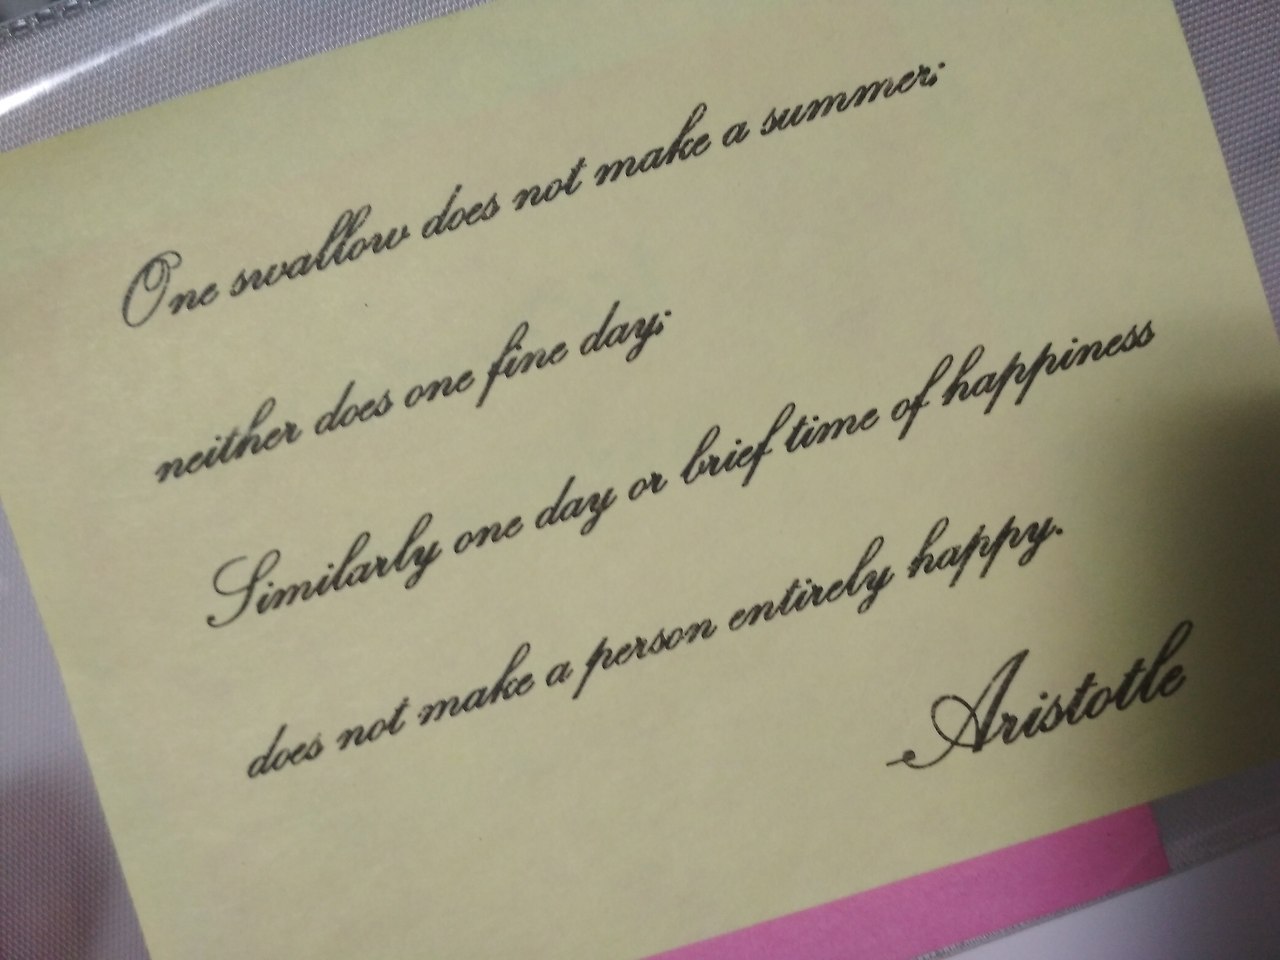 One swallow does not make a summer;
neither does one fine day;
Similarly one day or brief time of happiness
does not make a person entirely happy.
-Aristotle